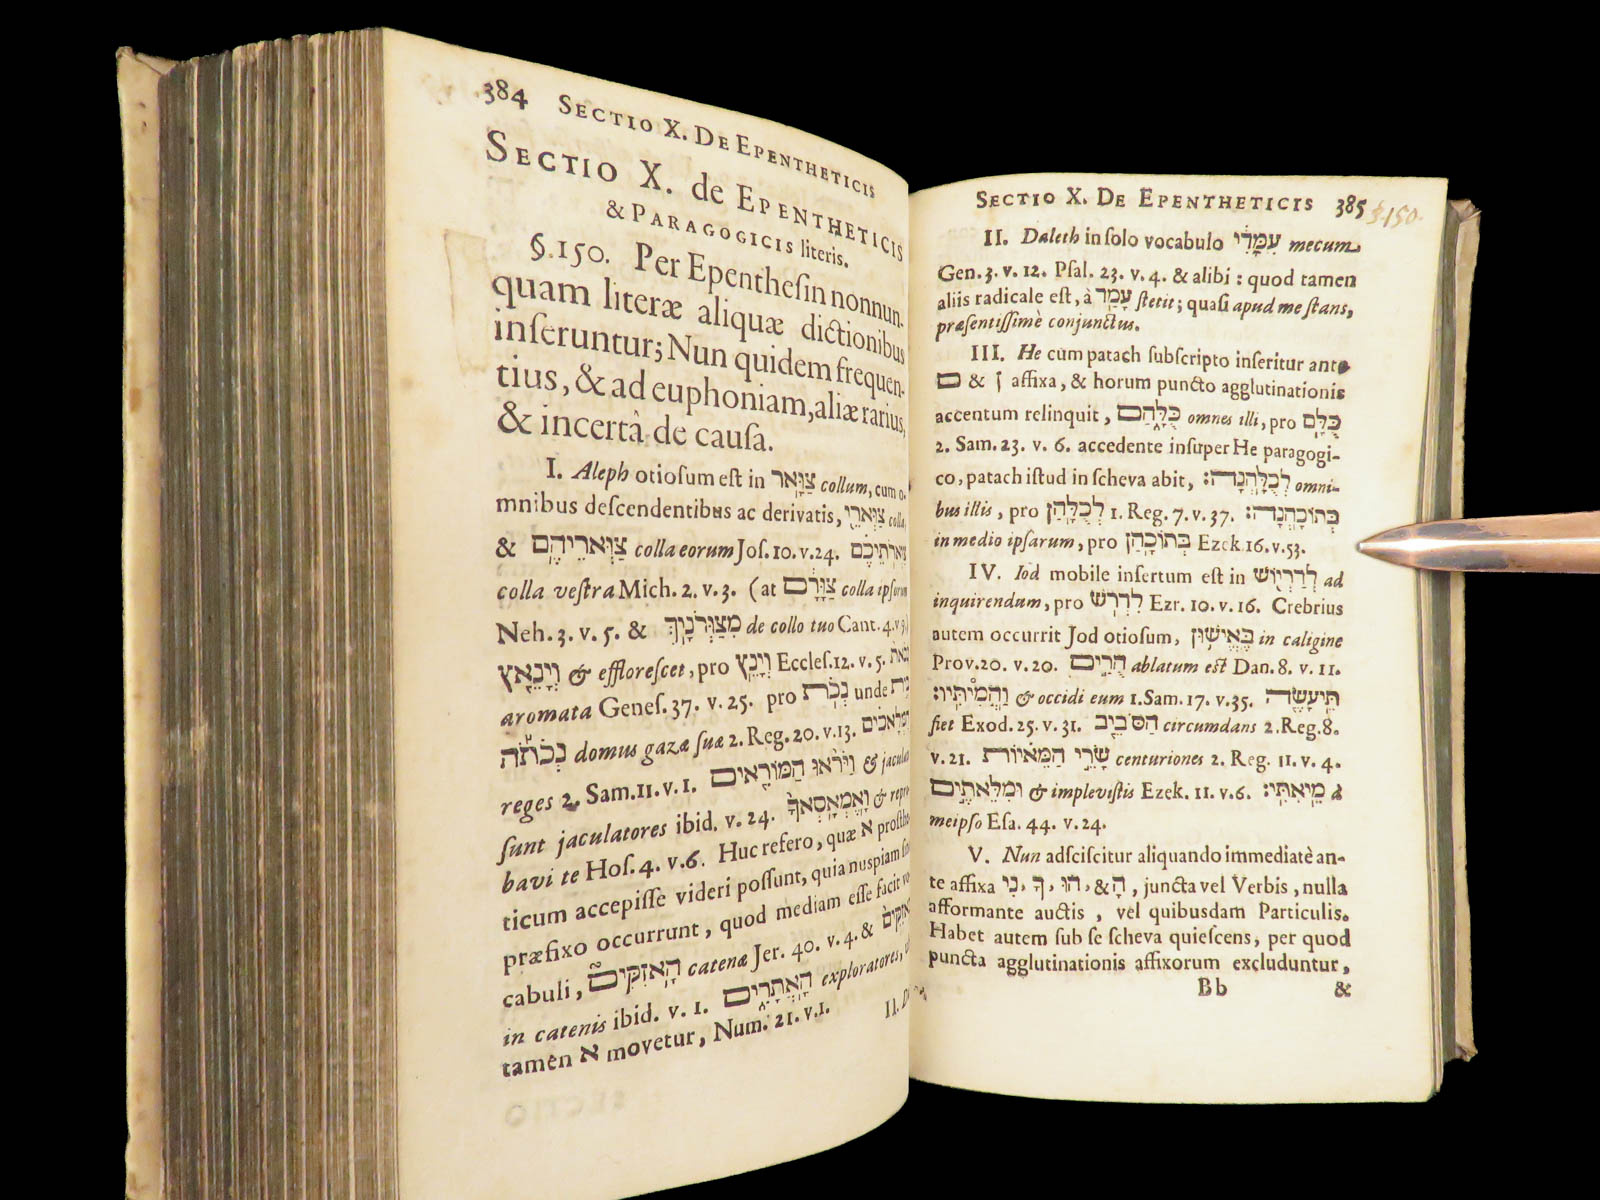 384 SECTIO X. DE EPENTHETICIS
SECTIO X. de EPENTHETICIS
& PARAGOGICIS literis.
§. 150. Per Epentheſin nonnun-
quam literæ aliquæ dictionibus
inſeruntur; Nun quidem frequen-
tius, & ad euphoniam, aliæ rarius,
& incertâ de cauſa.
I. Aleph otioſum eſt in צַוָּאר collum, cum o-
mnibus deſcendentibus ac derivatis, צַוְּארֵי colla,
& צַוְּארֵיהֶם colla eorum Joſ. 10. v. 24.
colla veſtra Mich. 2. v. 3. (at צַוָּרָם colla ipſorum
Neh. 3. v. 5. & מִצַּוְּרֹנָיִךְ de collo tuo Cant. 4. v. 9.)
וְיָנֵאץ & effloreſcet, pro וְיָנֵץ Eccleſ. 12. v. 5.
aromata Geneſ. 37. v. 25. pro נְכֹת unde
נְכֹתֹה domus gazæ ſuæ 2. Reg. 20. v. 13. הַמַּלְאכִים
reges 2. Sam. 11. v. 1. וַיֹּראוּ הַמּוֹרְאִים & jacula-
ſunt jaculatores ibid. v. 24. וְאֶמְאָסְאךָ & repro-
bavi te Hoſ. 4. v. 6. Huc refero, quæ א proſthe-
ticum accepiſſe videri poſſunt, quia nuspiam ſine
præfixo occurrunt, quod mediam eſſe facit vo-
cabuli, הָאזִקִּים catenæ Jer. 40. v. 4. &
in catenis ibid. v. 1. הָאֲתָרִים exploratores,
tamen א movetur, Num. 21. v. 1.
SECTIO X. DE EPENTHETICIS 385
§. 150.
II. Daleth in ſolo vocabulo עִמָּדִי mecum
Gen. 3. v. 12. Pſal. 23. v. 4. & alibi: quod tamen
aliis radicale eſt, à עָמַד ſtetit; quaſi apud me ſtans,
præſentiſſimè conjunctus.
III. He cum patach ſubſcripto inſeritur ante
ם & ן affixa, & horum puncto agglutinationis
accentum relinquit, כֻּלָּהַם omnes illi, pro כֻּלָּם
2. Sam. 23. v. 6. accedente inſuper He paragogi-
co, patach iſtud in ſcheva abit, לְכֻלָּהְנָה: omni-
bus illis, pro לְכֻלָּהַן 1. Reg. 7. v. 37. בְּתוֹכָהְנָה:
in medio ipſarum, pro בְּתוֹכָהַן Ezek. 16. v. 53.
IV. Iod mobile inſertum eſt in לְדַרְיוֹשׁ ad
inquirendum, pro לִדְרֹשׁ Ezr. 10. v. 16. Crebrius
autem occurrit Jod otioſum, בֶּאֱישׁוּן in caligine
Prov. 20. v. 20. הֻרַיִם ablatum eſt Dan. 8. v. 11.
וַהֲמִיתִּיו: & occidi eum 1. Sam. 17. v. 35. תֵּיעָשֶׂה
fiet Exod. 25. v. 31. הַסֹּבֵיב circumdans 2. Reg. 8.
v. 21. שָׂרֵי הַמֵּאיוֹת centuriones 2. Reg. 11. v. 4.
וּמִלֵּאתֶים & impleviſtis Ezek. 11. v. 6. מֵיאִתִּי: à
meipſo Eſa. 44. v. 24.
V. Nun adſciſcitur aliquando immediatè an-
te affixa נִי, ךָ, הוּ, & הָ, juncta vel Verbis, nulla
afformante auctis, vel quibusdam Particulis.
Habet autem ſub ſe ſcheva quieſcens, per quod
puncta agglutinationis affixorum excluduntur,
Bb &